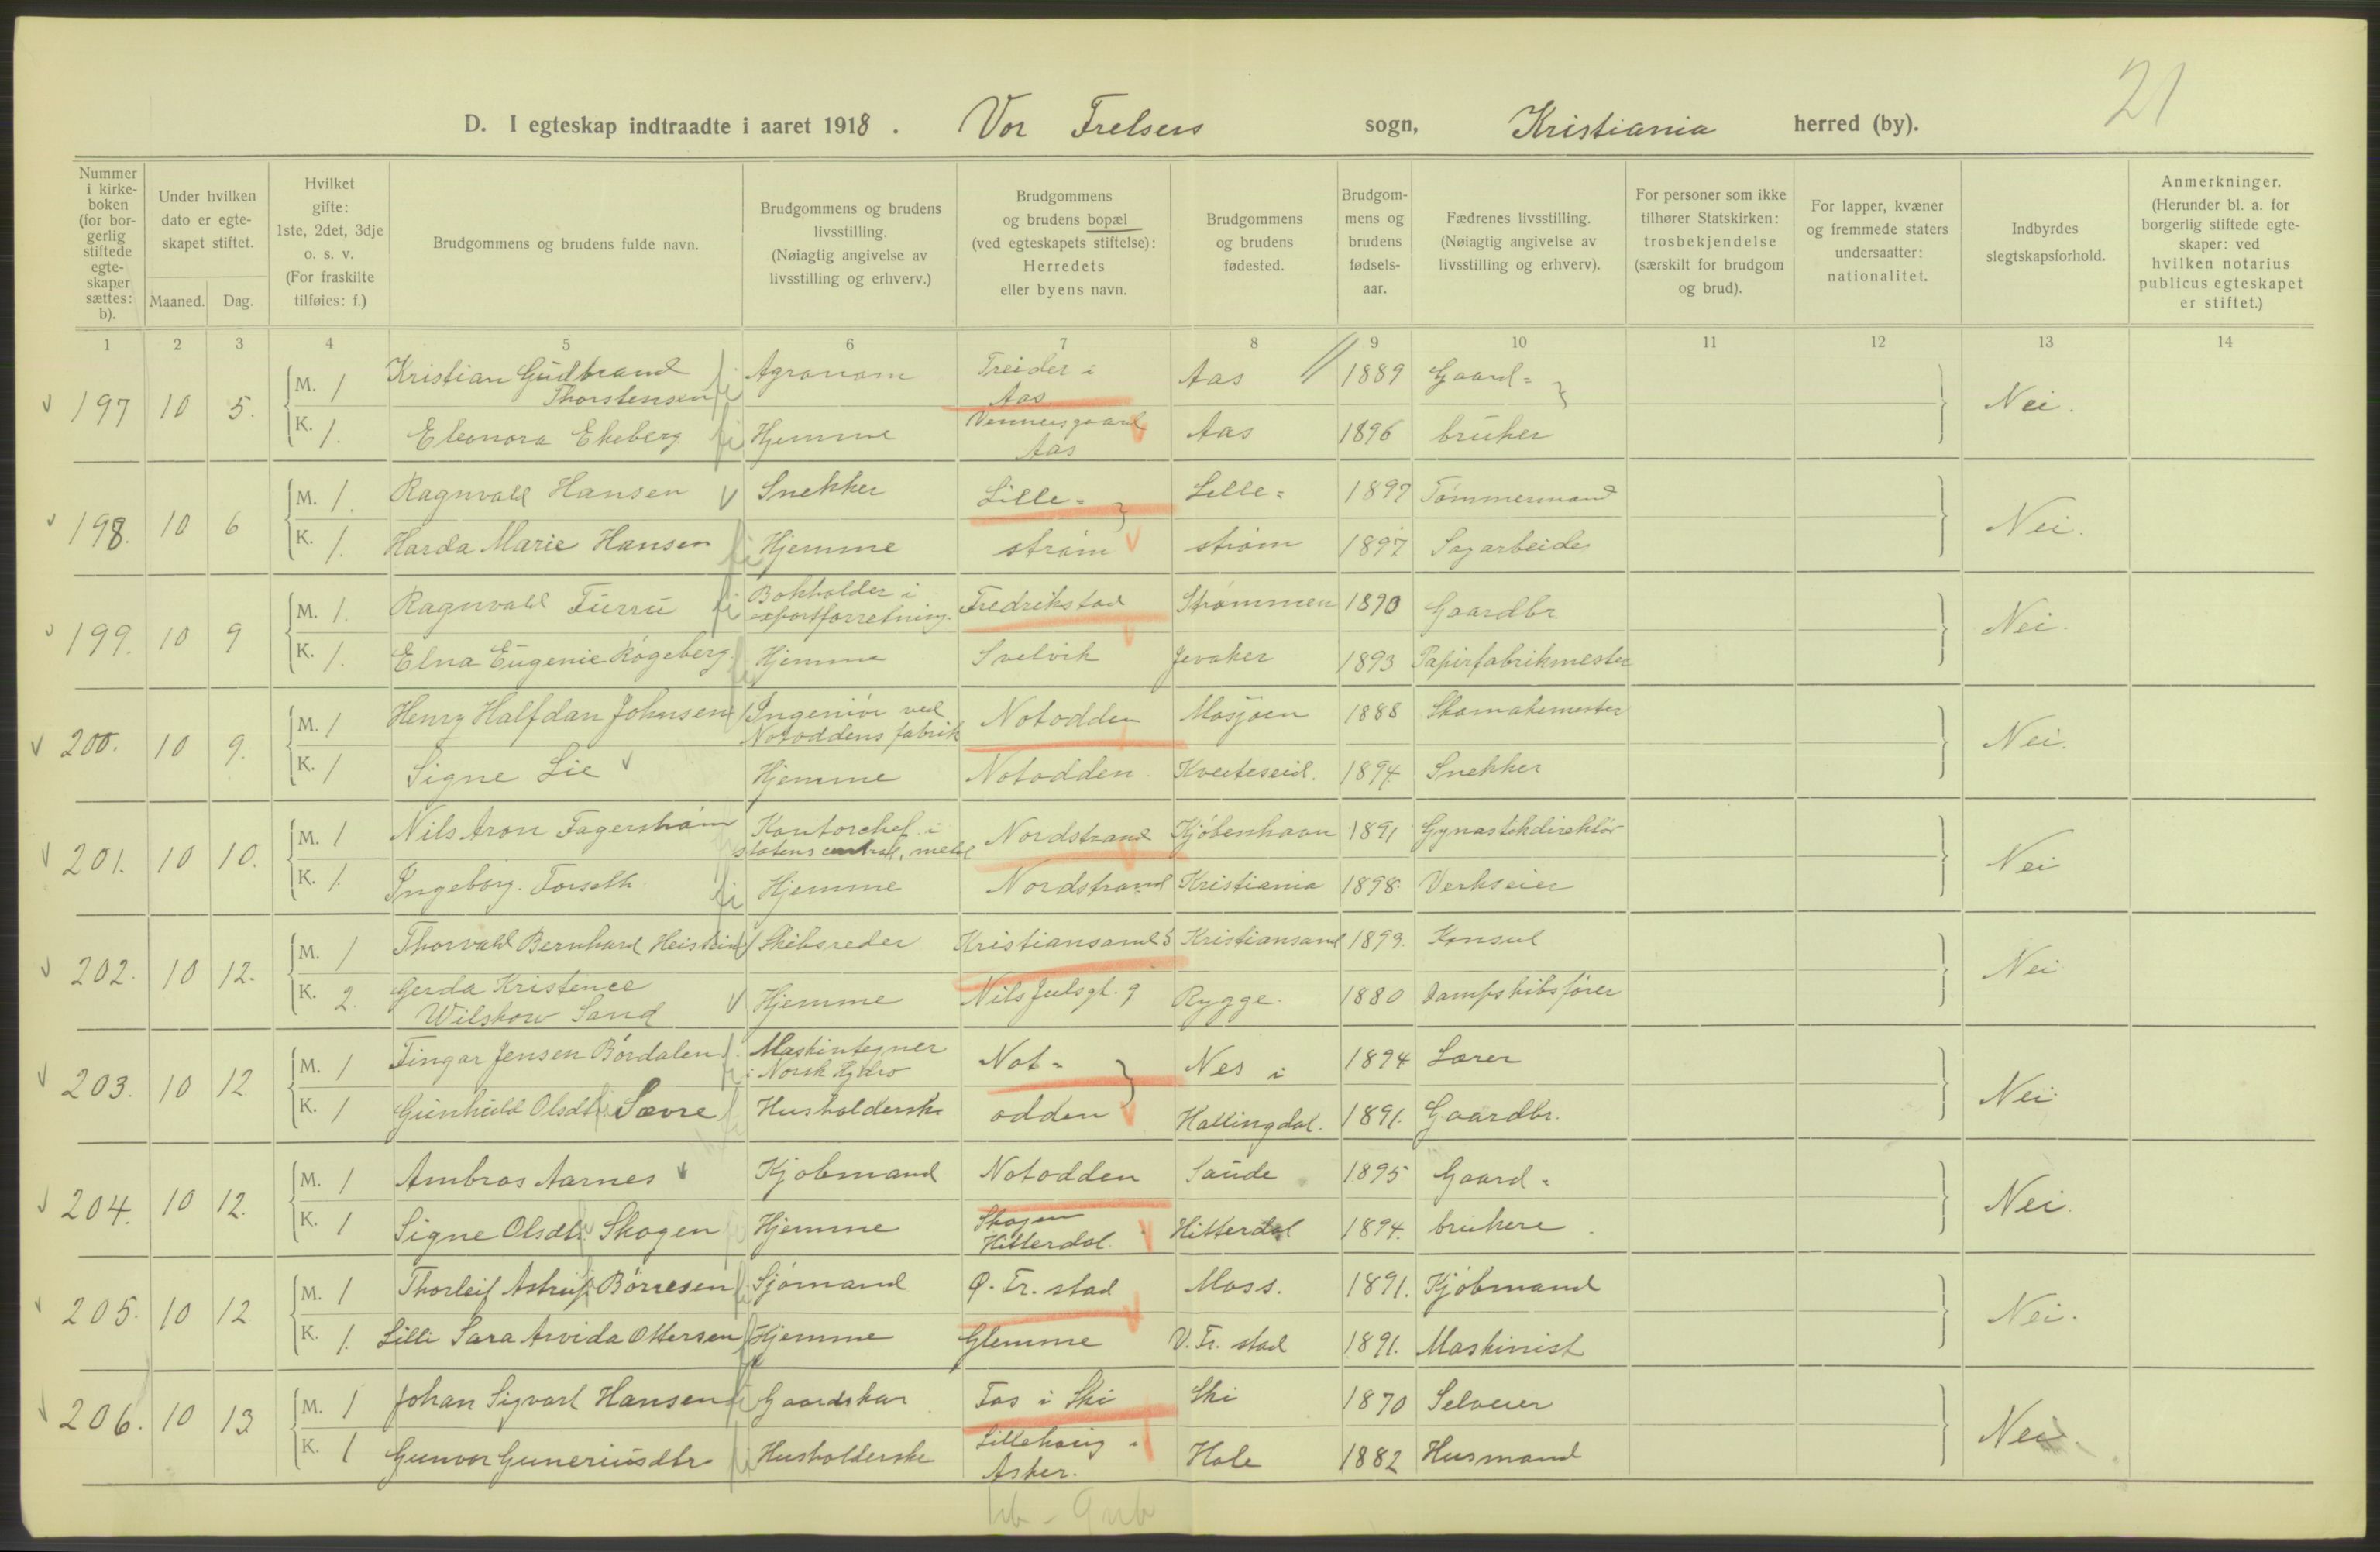 21
D. I egteskap indtraadte i aaret 1918. Vor Frelsers sogn, Kristiania herred (by).
Nummer i kirke-boken (for bor-gerlig stiftede egte-skaper sættes: b).
Under hvilken dato er egte-skapet stiftet.
Maaned. Dag.
Hvilket gifte: 1ste, 2det, 3dje o. s. v. (For fraskilte tilføies: f.)
Brudgommens og brudens fulde navn.
Brudgommens og brudens livsstilling. (Nøiagtig angivelse av livsstilling og erhverv.)
Brudgommens og brudens bopæl (ved egteskapets stiftelse): Herredets eller byens navn.
Brudgommens og brudens fødested.
Brudgom-mens og brudens fødsels-aar.
Fædrenes livsstilling. (Nøiagtig angivelse av livsstilling og erhverv).
For personer som ikke tilhører Statskirken: trosbekjendelse (særskilt for brudgom og brud).
For lapper, kvæner og fremmede staters undersaatter: nationalitet.
Indbyrdes slegtskapsforhold.
Anmerkninger. (Herunder bl. a. for borgerlig stiftede egte-skaper: ved hvilken notarius publicus egteskapet er stiftet.)
1 2 3 4 5 6 7 8 9 10 11 12 13 14
197 10 5. M. 1 Kristian Gudbrand Thorstensen Agronom Treider i Aas Aas 1889 Gaard= Nei.
K. 1. Eleonora Ekeberg Hjemme Vennersgaard Aas Aas 1896 bruker
198. 10 6 M. 1. Ragnvald Hansen Snekker Lille= Lille= 1897 Tømmermand Nei.
K. 1. Harda Marie Hansen Hjemme strøm strøm 1897 Sagarbeider
199. 10 9 M. 1. Ragnvald Furru Bokholder i exportforretning. Fredrikstad Strømmen 1890 Gaardbr. Nei.
K. 1. Elna Eugenie Røgeberg Hjemme Svelvik Jevaker 1893 Papirfabrikmester
200. 10 9. M. 1 Henry Halfdan Johnsen Ingeniør ved Notoddens fabrik Notodden Mosjøen 1888 Skomakemester Nei.
K. 1 Signe Lie Hjemme Notodden Kviteseid. 1894. Snekker
201. 10 10. M. 1 Nils Aron Fagerstrøm Kontorchef i statens central, Nordstrand Kjøbenhavn 1891 Gynastikdirektør Nei
K. 1. Ingeborg Forseth Hjemme Nordstrand Kristiania 1898. Verkseier
202. 10 12. M. 1 Thorvald Bernhard Heistein Skibsreder Kristiansand S Kristiansand 1893. Konsul Nei
K. 2. Gerda Kristence Wilskow Sand Hjemme Nils Juelsgt. 9 Rygge. 1880 Dampskibsfører
203. 10 12 M. 1 Fingar Jensen Børdalen Maskintegner i Norsk Hydro Not= Nes i 1894 Lærer Nei.
K. 1 Gunhild Olsdtr. Sævre Husholderske odden Hallingdal. 1891. Gaardbr.
204. 10 12. M. 1 Ambros Aarnes Kjøbmand Notodden Saude 1895 Gaard= Nei.
K. 1 Signe Olsdtr. Skogen Hjemme Skogen Hitterdal. Hitterdal 1894. brukere
205. 10 12 M. 1 Thorleif Astrup Børresen Sjømand Ø. Fr. stad Moss. 1891. Kjøbmand Nei.
K. 1. Lilli Sara Arvida Ottersen Hjemme Glemme V. Fr. stad 1891. Maskinist
206. 10 13 M. 1 Johan Sigvart Hansen Gaardskar Fos i Ski Ski 1870 Selveier Nei.
K. 1 Gunvor Guneriusdtr. Husholderske Asker. Hole 1882 Husmand